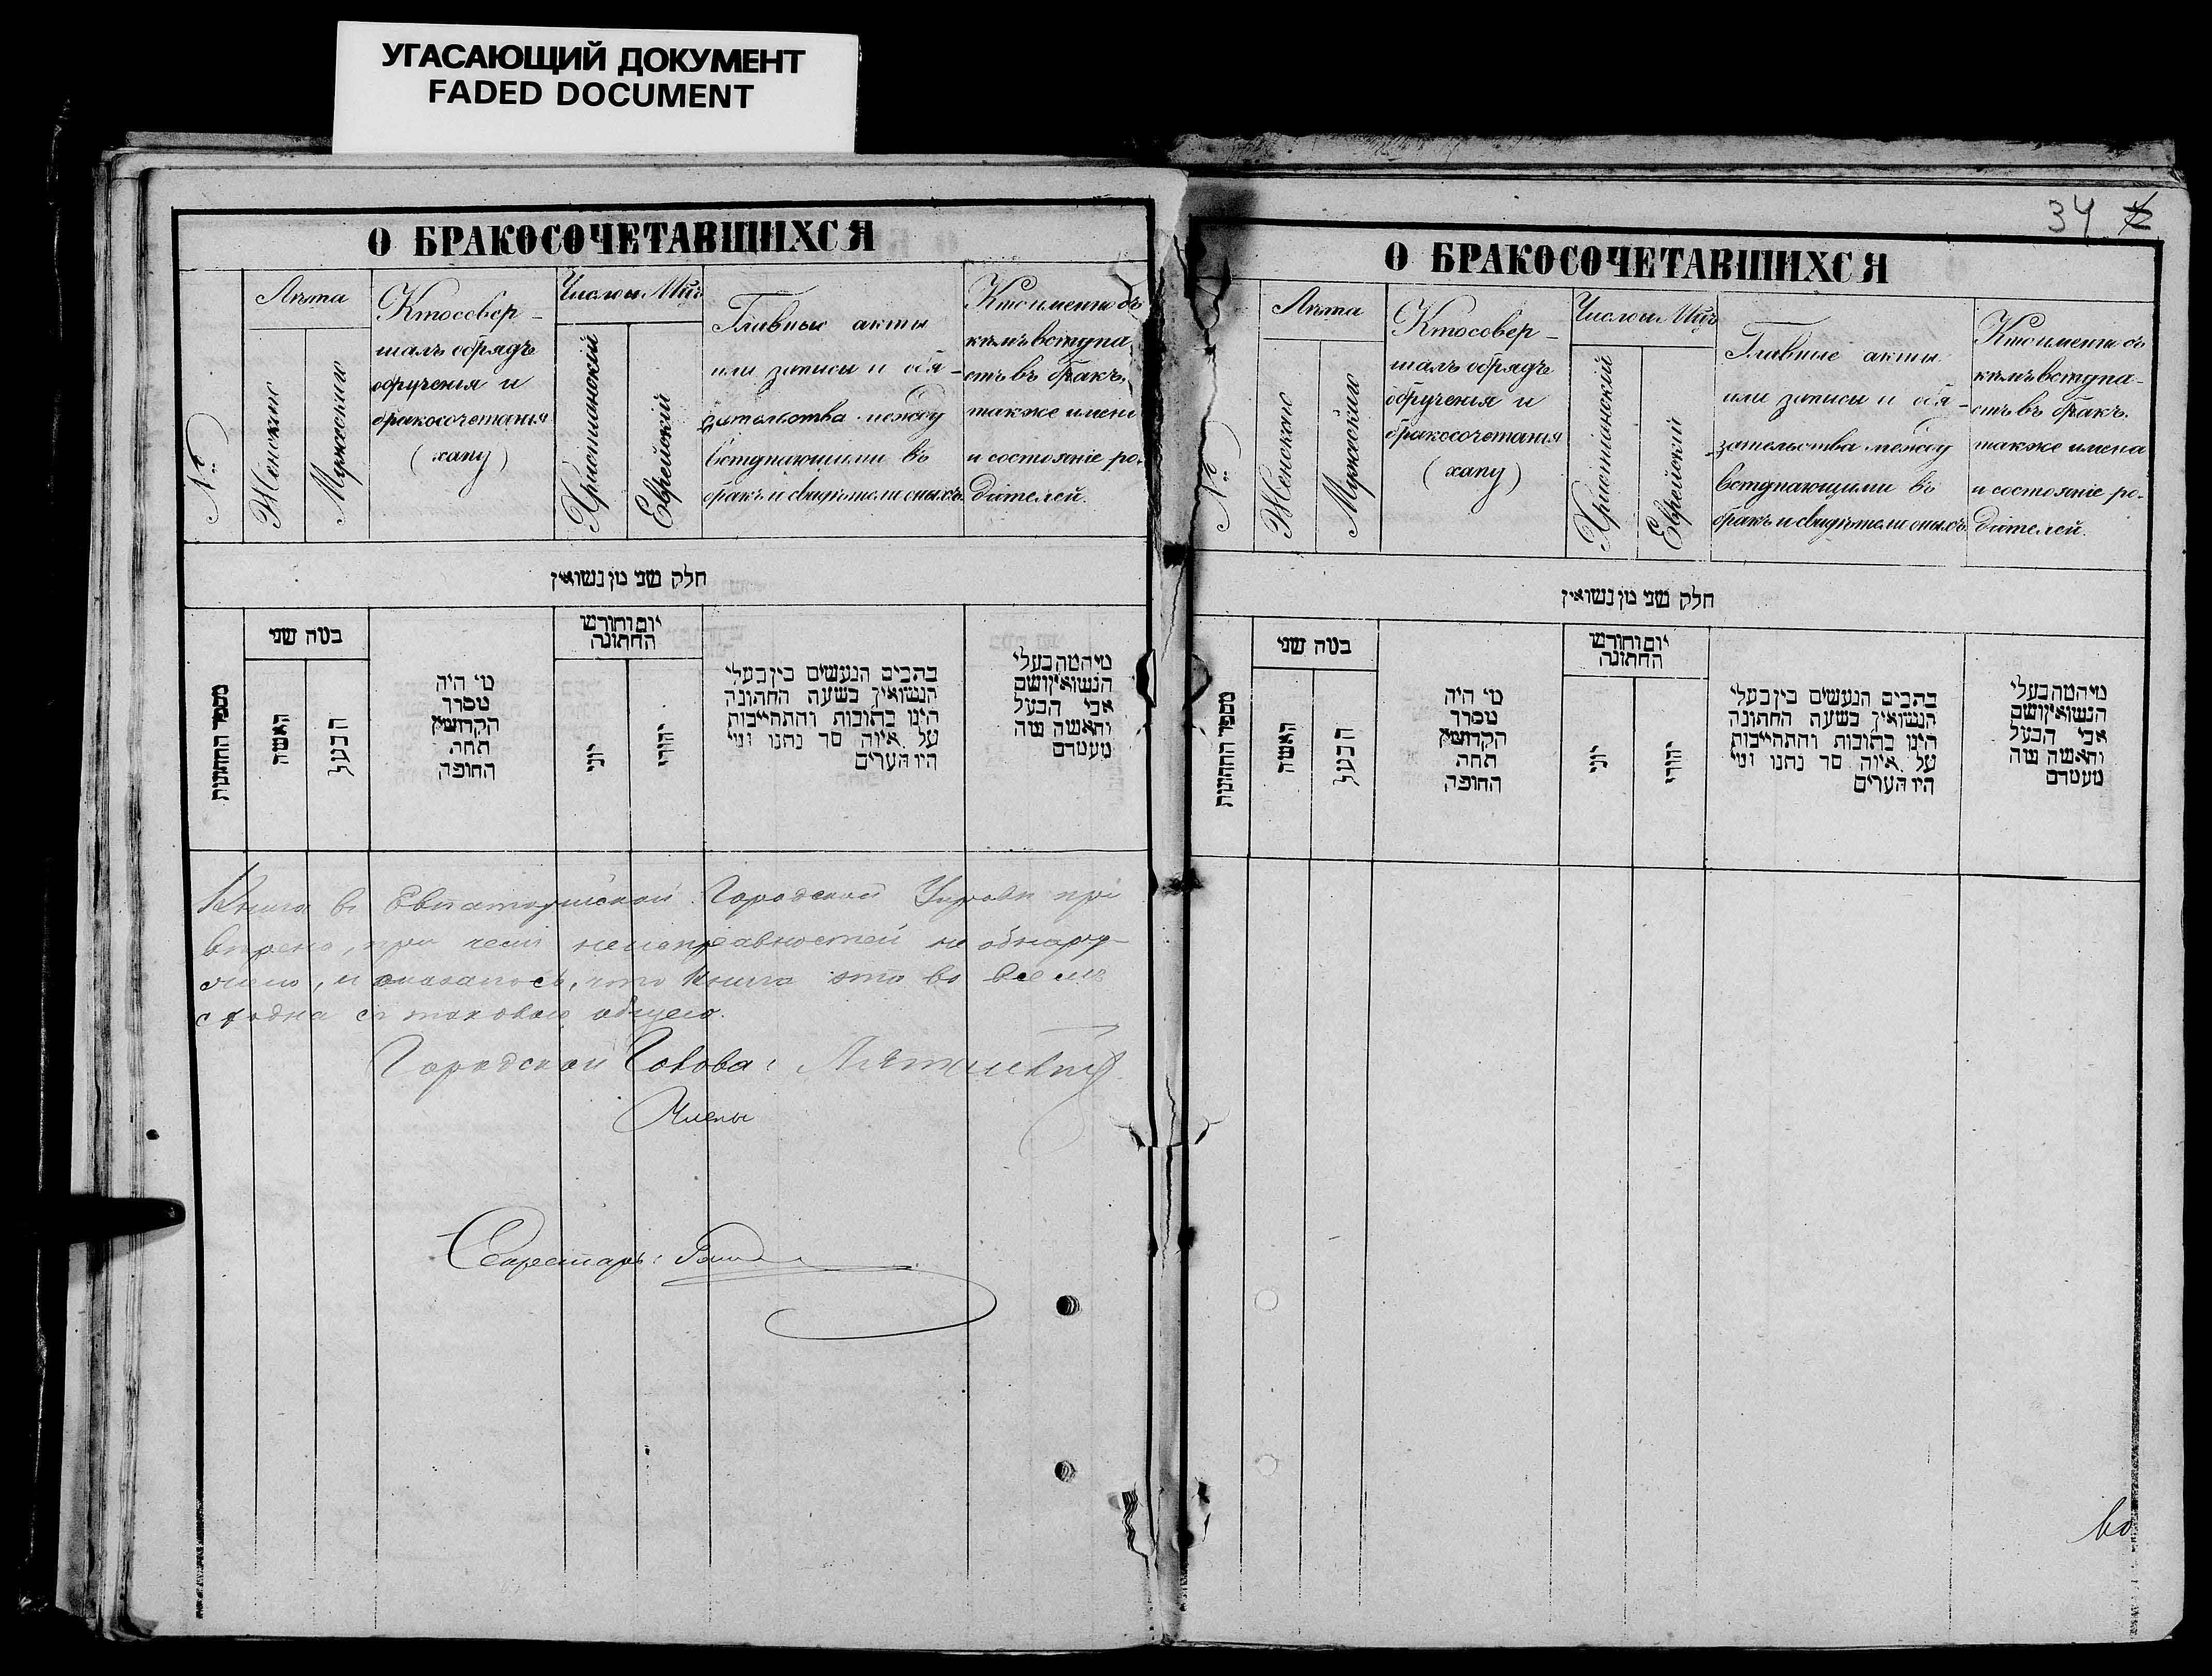 УГАСАЮЩИЙ ДОКУМЕНТ
FADED DOCUMENT
О БРАКОСОЧЕТАВШИХСЯ
№
Лѣта
Женскихъ
Мужескихъ
Кто совер-
шалъ обрядъ
обрученія и
бракосочетанія
(хапу)
Число и М-цъ
Христіанскій
Еврейскій
Главные акты
или записи и обя-
зательства между
вступающими въ
бракъ и свидѣтели оныхъ
Кто именно съ
кѣмъ вступа-
етъ въ бракъ.
также имена
и состояніе ро-
дителей.
חלק שני מן נשואין
מספר החתונות
במה שני
האשה
הבעל
מי היה
מסדר
הקדושין
תחת
החופה
יום וחודש
החתונה
יוני
יהודי
כתבים הנעשים בין בעלי
הנשואין בשעת החתונה
היינו כתובות והתחייבות
על איזה סך נתנו ומי
היו הערים
מי המה בעלי
הנשואין ושם
אבי הבעל
והאשה מה
מעמדם
Книга въ Евпаторійской Городской Управѣ про
вѣрена, при чемъ неисправностей не обнару-
жено, и оказалось, что книга эта во всемъ
сходна съ таковою общею.
Городской Голова:
Члены
Секретарь:
34
О БРАКОСОЧЕТАВШИХСЯ
№
Лѣта
Женскихъ
Мужескихъ
Кто совер-
шалъ обрядъ
обрученія и
бракосочетанія
(хапу)
Число и М-цъ
Христіанскій
Еврейскій
Главные акты
или записи и обя-
зательства между
вступающими въ
бракъ и свидѣтели оныхъ
Кто именно съ
кѣмъ вступа-
етъ въ бракъ.
также имена
и состояніе ро-
дителей.
חלק שני מן נשואין
מספר החתונות
במה שני
האשה
הבעל
מי היה
מסדר
הקדושין
תחת
החופה
יום וחודש
החתונה
יוני
יהודי
כתבים הנעשים בין בעלי
הנשואין בשעת החתונה
היינו כתובות והתחייבות
על איזה סך נתנו ומי
היו הערים
מי המה בעלי
הנשואין ושם
אבי הבעל
והאשה מה
מעמדם
во